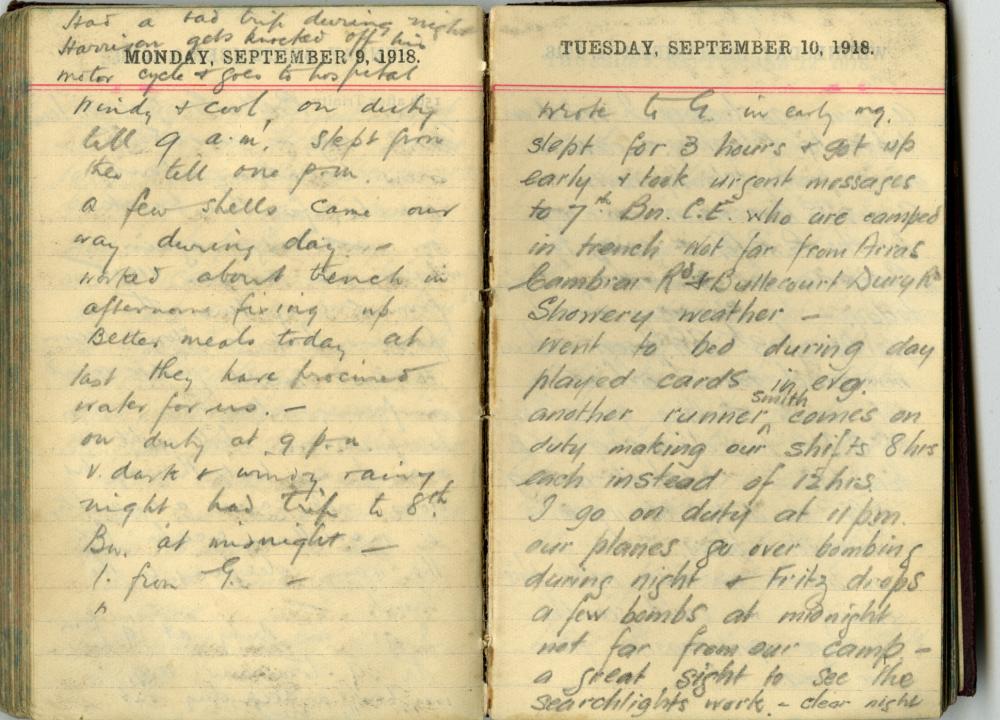 Had a bad trip during night
Harrison gets knocked off his
MONDAY, SEPTEMBER 9, 1918.
motor cycle & goes to hospital
Windy & cool on duty
till 9 a.m. slept from
then till one p.m.
a few shells came our
way during day. -
worked about trench in
afternoon fixing up
Better meals today at
last they have procured
water for us. -
on duty at 9 p.m
v. dark & windy rainy
night had trip to 8th
Bn. at midnight. -
1. from G. -
TUESDAY, SEPTEMBER 10, 1918.
wrote to G. in early mg.
slept for 3 hours & got up
early & took urgent messages
to 7th Bn. C.E. who are camped
in trench not far from Arras
Cambrai Rd & Bullecourt Dury Rd
Showery weather -
went to bed during day
played cards in evg.
another runner Smith comes on
duty making our shifts 8 hrs
each instead of 12 hrs
I go on duty at 11 p.m.
our planes go over bombing
during night & Fritz drops
a few bombs at midnight
not far from our camp -
a great sight to see the
searchlights work. - clear night